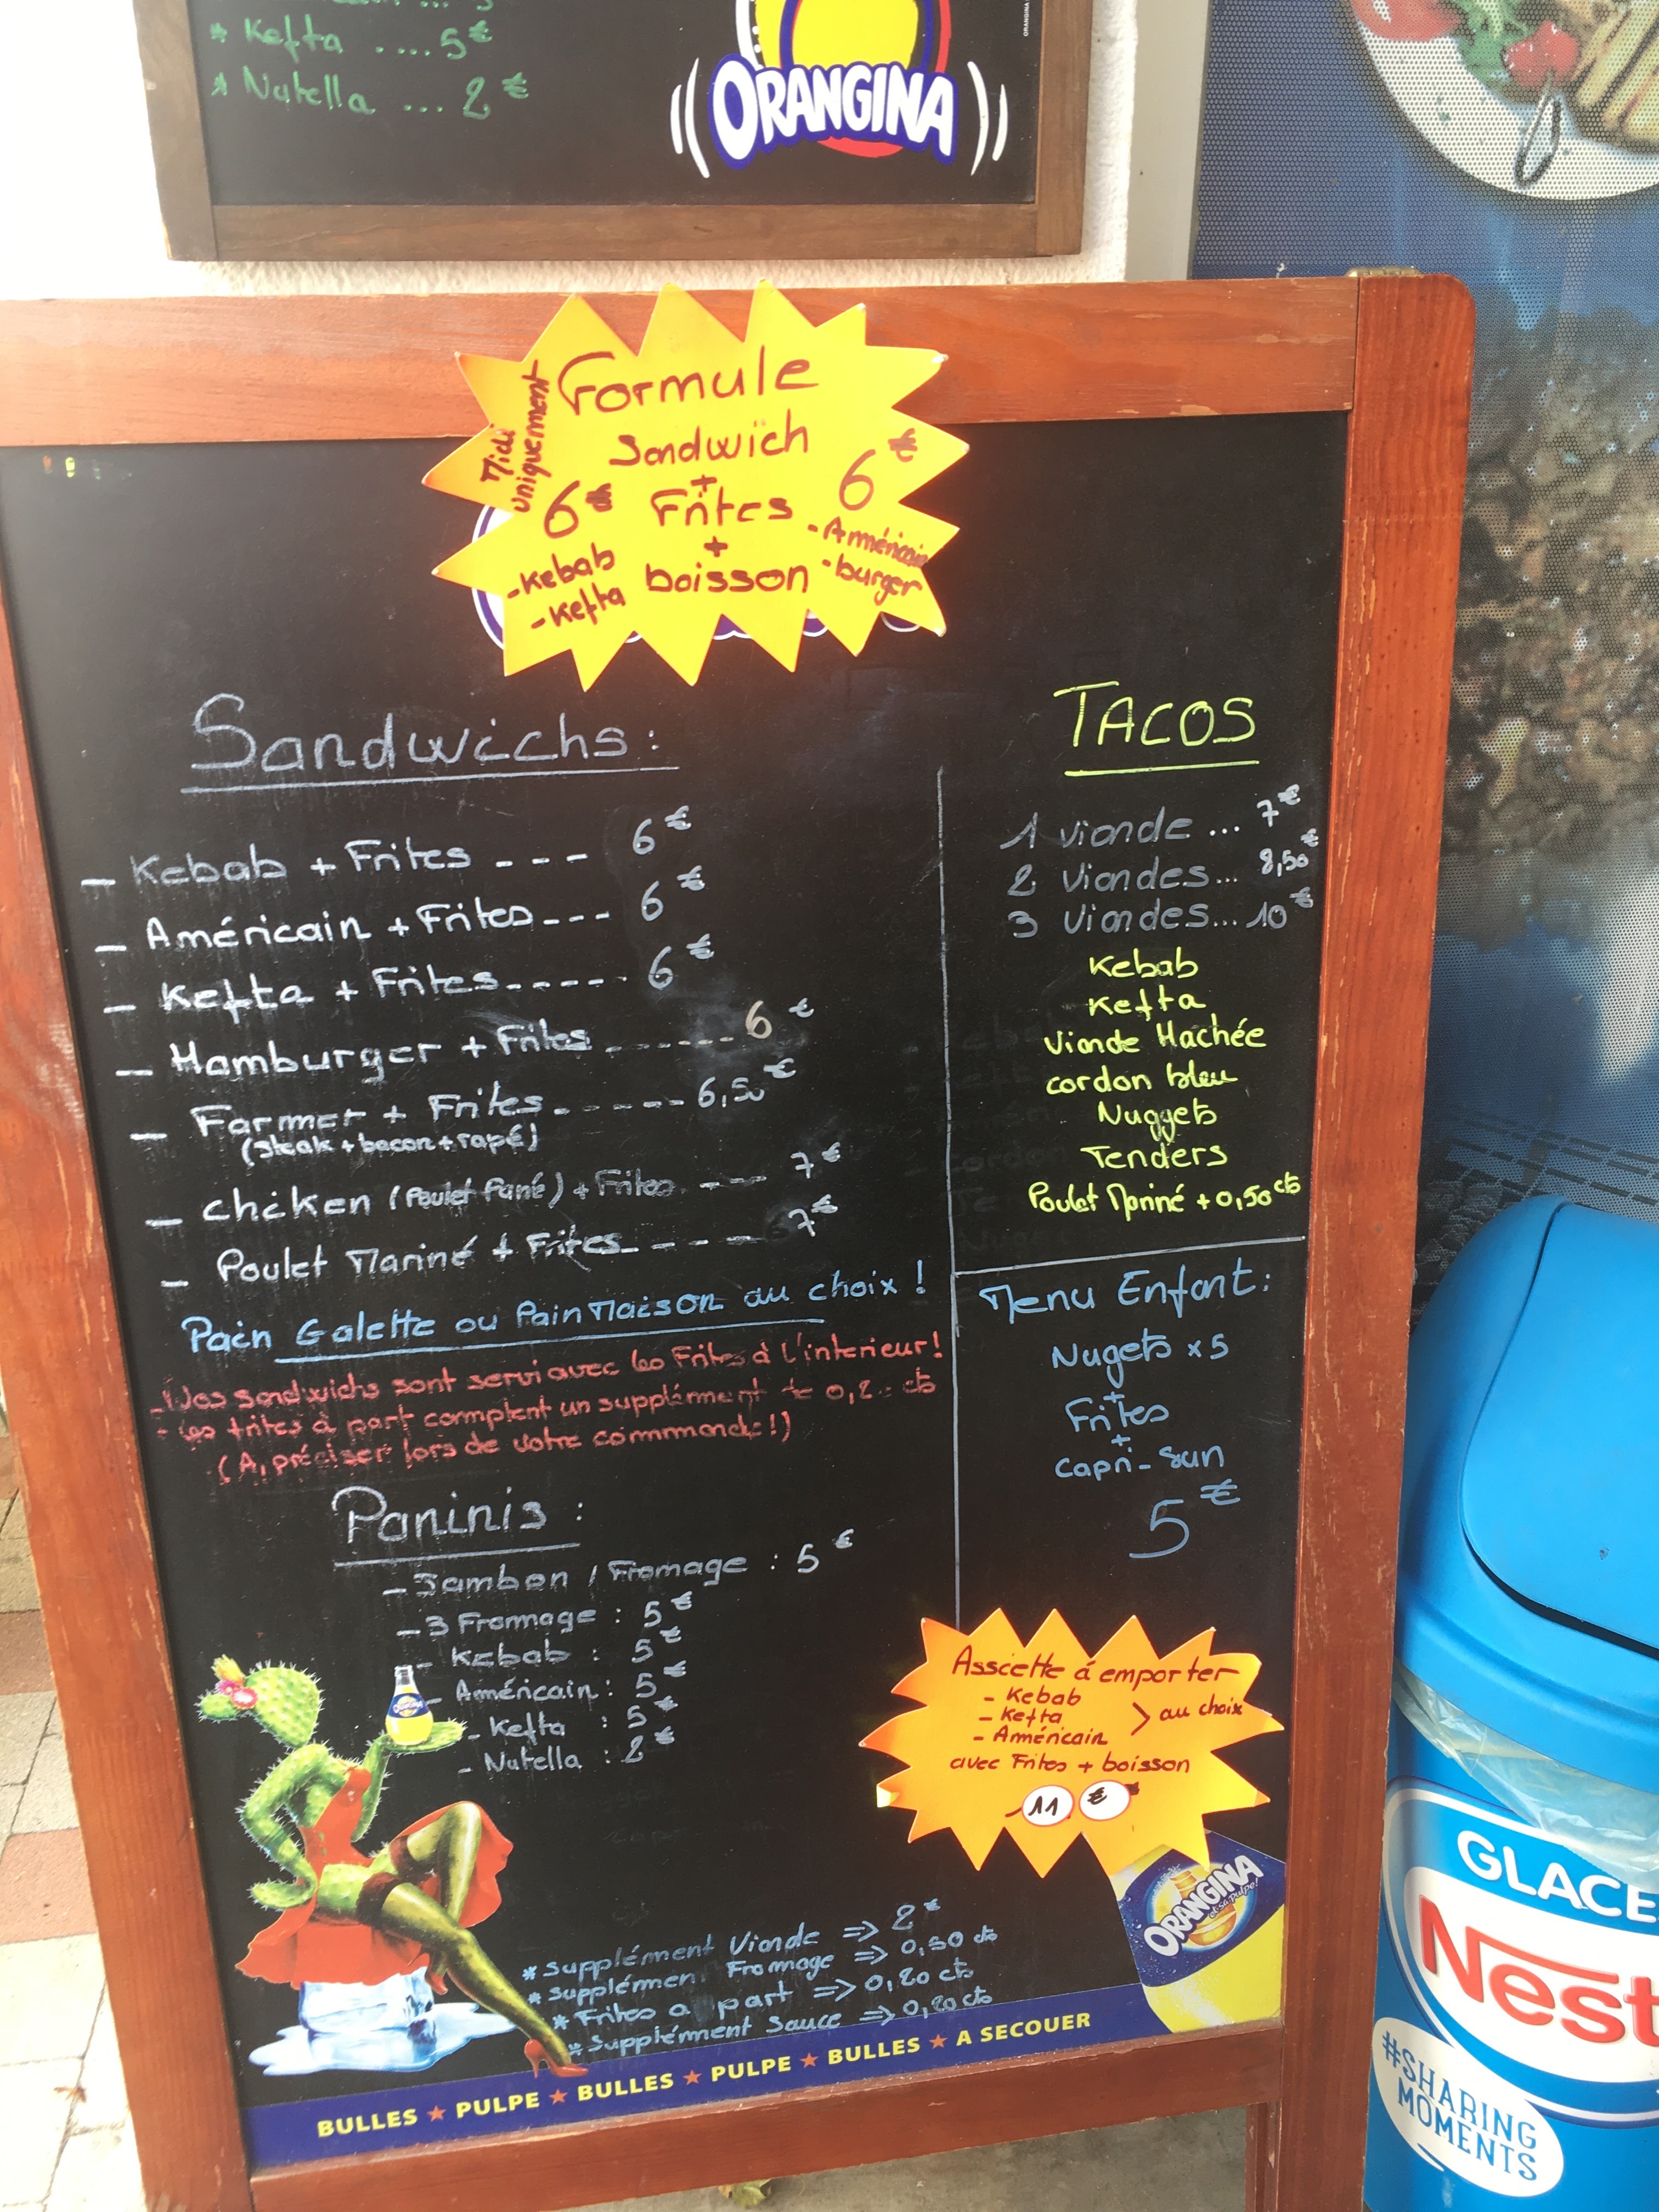 * Kefta .... 5€
* Nutella ... 2€
ORANGINA
Midi uniquement
Formule
Sandwich
+
Frites
+
boisson
6
- Kebab
- Kefta
6€
- Américain
- burger
Sandwichs :
– Kebab + Frites - - - 6€
– Américain + Frites - - - 6€
– Kefta + Frites - - - - - 6€
– Hamburger + Frites - - - - - - 6€
– Farmer + Frites - - - - - - 6,50€
(Steak + bacon + rapé)
– chicken (Poulet Pané) + Frites - - - 7€
– Poulet Mariné + Frites - - - - 7€
Pain Galette ou Pain Maison au choix !
- Nos sandwichs sont servi avec les Frites à l'interieur!
- Les frites à part comptent un supplément de 0,2 cts
(A préciser lors de votre commande!)
Paninis :
– Jambon / Fromage : 5€
– 3 Frommage : 5€
- Kebab : 5€
- Américain : 5€
- Kefta : 5€
- Nutella : 2€
TACOS
1 viande ... 7€
2 Viandes... 8,50€
3 Viandes... 10€
Kebab
Kefta
Viande Hachée
cordon bleu
Nuggets
Tenders
Poulet Mariné + 0,50 cts
Menu Enfant :
Nugets x 5
+
Frites
+
Capri-sun
5€
Assiette à emporter
- Kebab
- Kefta > au choix
- Américain
avec Frites + boisson
11 €
ORANGINA
et sa pulpe!
* Supplément Viande => 2€
* Supplémen Frommage => 0,50 cts
* Frites a part => 0,20 cts
* Supplément Sauce => 0,20 cts
BULLES ★ PULPE ★ BULLES ★ PULPE ★ BULLES ★ A SECOUER
GLACE
Nest
#SHARING
MOMENTS